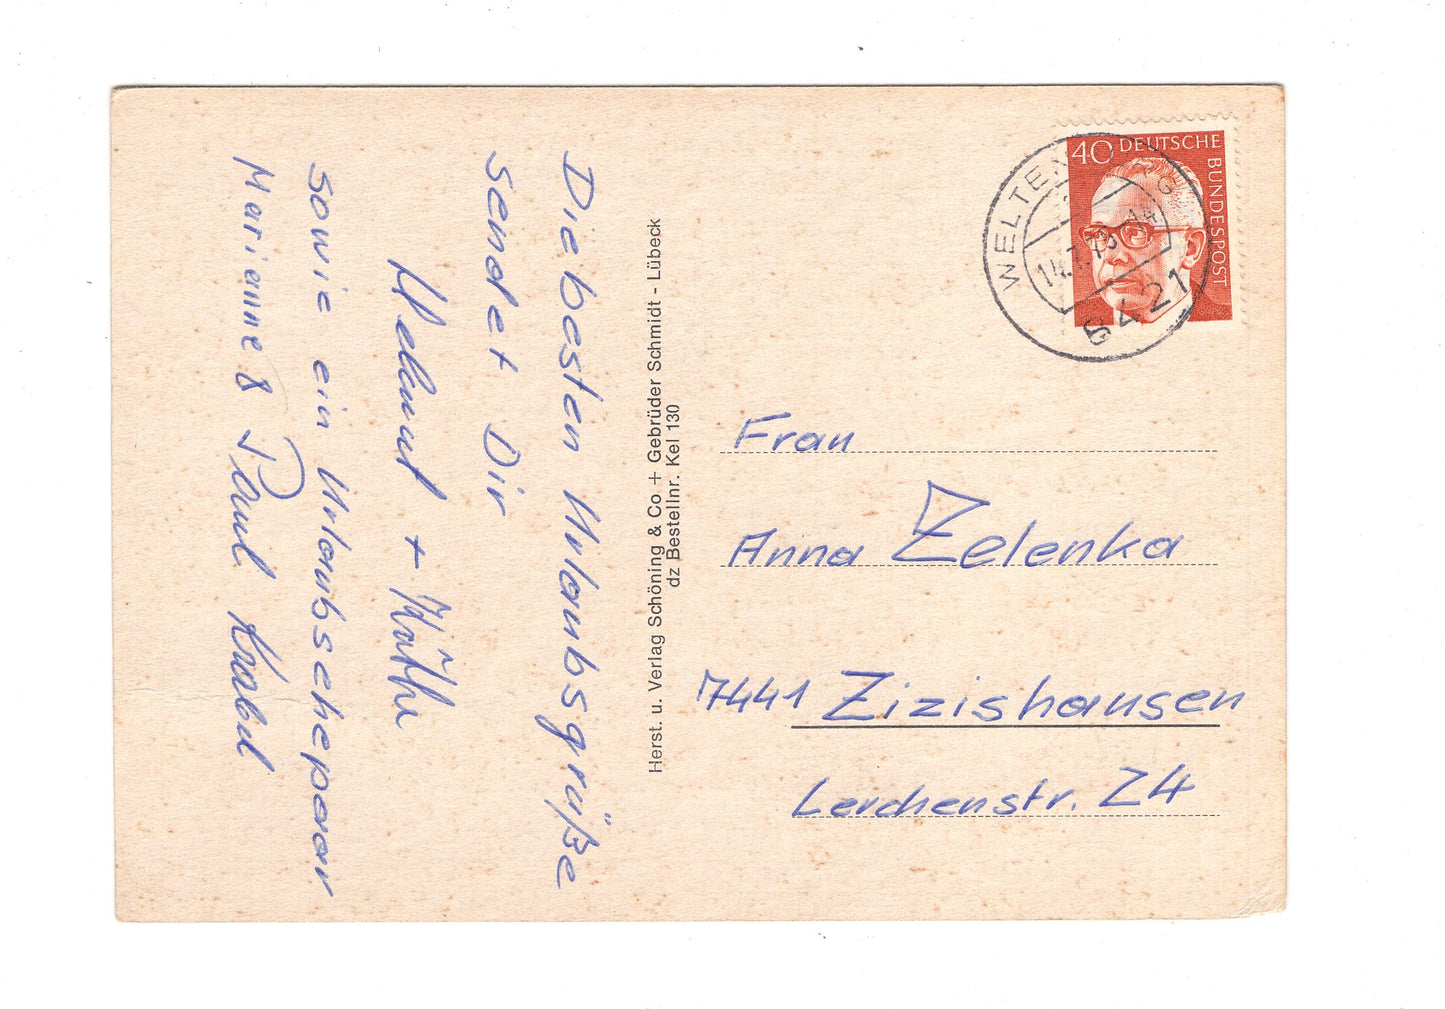 Die besten Urlaubsgrüße
sendet Dir
Helmut + Käthe
sowie ein Urlaubscheppaar
Marianne & Paul Krabel
Herst. u. Verlag Schöning & Co + Gebrüder Schmidt - Lübeck
dz Bestellnr. Kel 130
40 DEUTSCHE
BUNDESPOST
8421
Frau
Anna Zelenka
7441 Zizishausen
Lerchenstr. 24